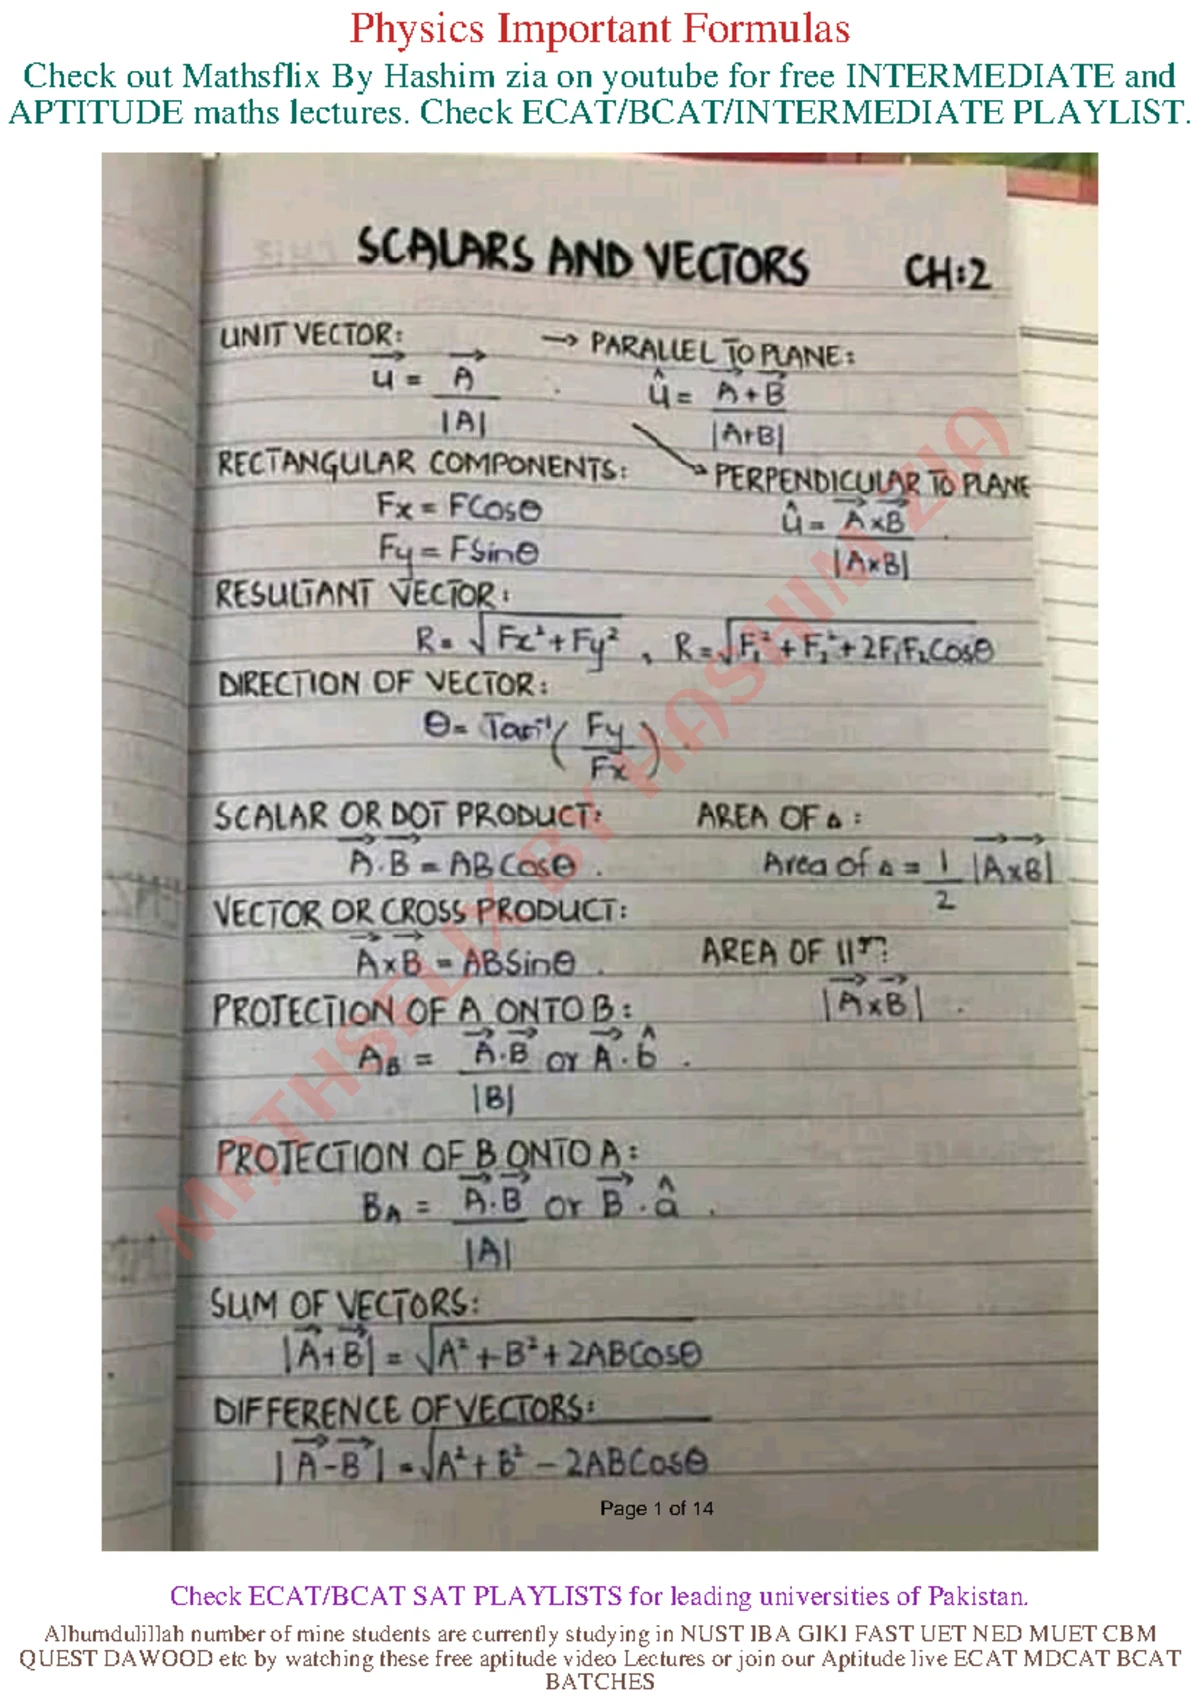 Physics Important Formulas
Check out Mathsflix By Hashim zia on youtube for free INTERMEDIATE and
APTITUDE maths lectures. Check ECAT/BCAT/INTERMEDIATE PLAYLIST.
SCALARS AND VECTORS CH:2
UNIT VECTOR:
u⃗ = A⃗ / |A|
→ PARALLEL TO PLANE:
û = A⃗ + B⃗ / |A+B|
RECTANGULAR COMPONENTS:
Fx = FCosθ
Fy = FSinθ
→ PERPENDICULAR TO PLANE
û = A⃗ x B⃗ / |A x B|
RESULTANT VECTOR:
R = √Fx² + Fy² , R = √F₁² + F₂² + 2F₁F₂Cosθ
DIRECTION OF VECTOR:
θ = Tan⁻¹ (Fy / Fx)
SCALAR OR DOT PRODUCT:
A⃗ . B⃗ = ABCosθ .
AREA OF △ :
Area of △ = 1/2 |A⃗ x B⃗|
VECTOR OR CROSS PRODUCT:
A⃗ x B⃗ = ABSinθ .
AREA OF ||gm:
|A⃗ x B⃗| .
PROJECTION OF A ONTO B:
A_B = A⃗ . B⃗ / |B| or A⃗ . b̂ .
PROJECTION OF B ONTO A:
B_A = A⃗ . B⃗ / |A| or B⃗ . â .
SUM OF VECTORS:
|A⃗ + B⃗| = √A² + B² + 2ABCosθ
DIFFERENCE OF VECTORS:
|A⃗ - B⃗| = √A² + B² - 2ABCosθ
MATHSFLIX BY HASHIM ZIA
Page 1 of 14
Check ECAT/BCAT SAT PLAYLISTS for leading universities of Pakistan.
Alhumdulillah number of mine students are currently studying in NUST IBA GIKI FAST UET NED MUET CBM
QUEST DAWOOD etc by watching these free aptitude video Lectures or join our Aptitude live ECAT MDCAT BCAT
BATCHES